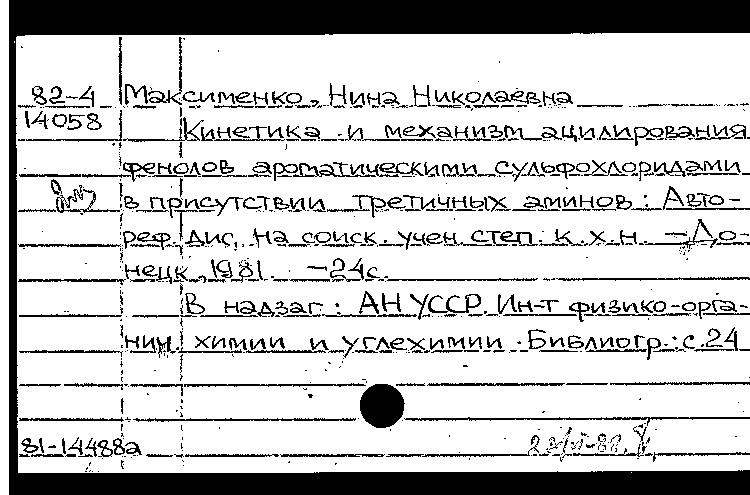 82-4 Максименко, Нина Николаевна
14058 Кинетика и механизм ацилирования
фенолов ароматическими сульфохлоридами
в присутствии третичных аминов: Авто-
реф. Дис. на соиск. учен. степ. к.х.н. - До-
нецк, 1981. - 24с.
В надзаг: АН УССР. Ин-т физико-орга-
нич. химии и углехимии. Библиогр.: с.24
81-14488а